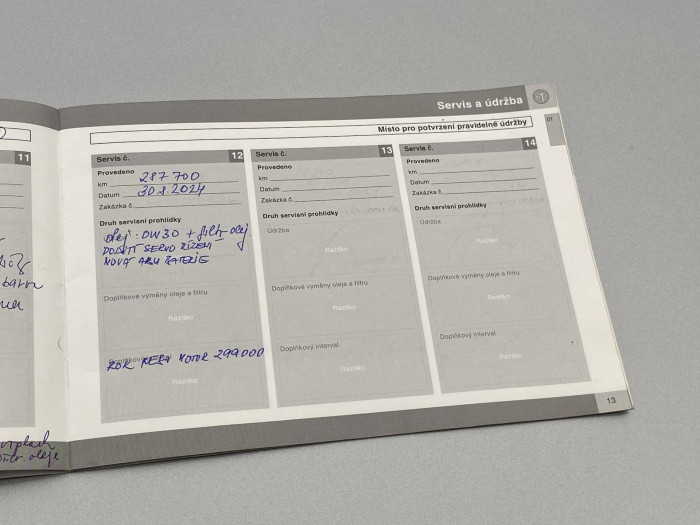 Servis a údržba
01
Místo pro potvrzení pravidelné údržby
11
Servis č. 12
Provedeno
km 287 700
Datum 30.8.2024
Zakázka č.
Druh servisní prohlídky
olej. 0W30 + filtr olej
SERVO ŘÍZENÍ
NOVÁ BATERIE
Doplňkové výměny oleje a filtru
Razítko
Doplňkový interval
MOTOR 299000
Razítko
Servis č. 13
Provedeno
km
Datum
Zakázka č.
Druh servisní prohlídky
Údržba
Razítko
Doplňkové výměny oleje a filtru
Razítko
Doplňkový interval
Razítko
Servis č. 14
Provedeno
km
Datum
Zakázka č.
Druh servisní prohlídky
Údržba
Razítko
Doplňkové výměny oleje a filtru
Razítko
Doplňkový interval
Razítko
oleje
13